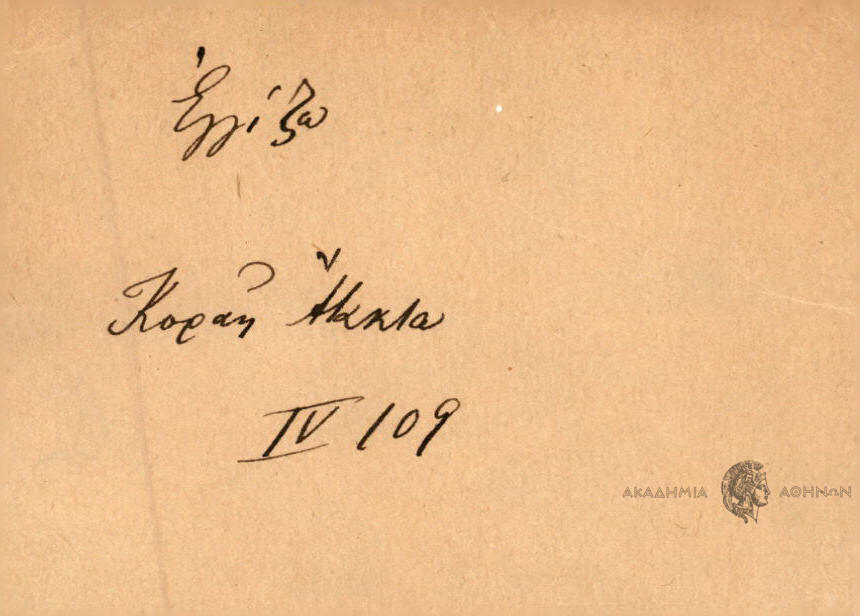 ἐγγίζω
Κοραῆ Ἄτακτα
IV 109
ΑΚΑΔΗΜΙΑ ΑΘΗΝΩΝ